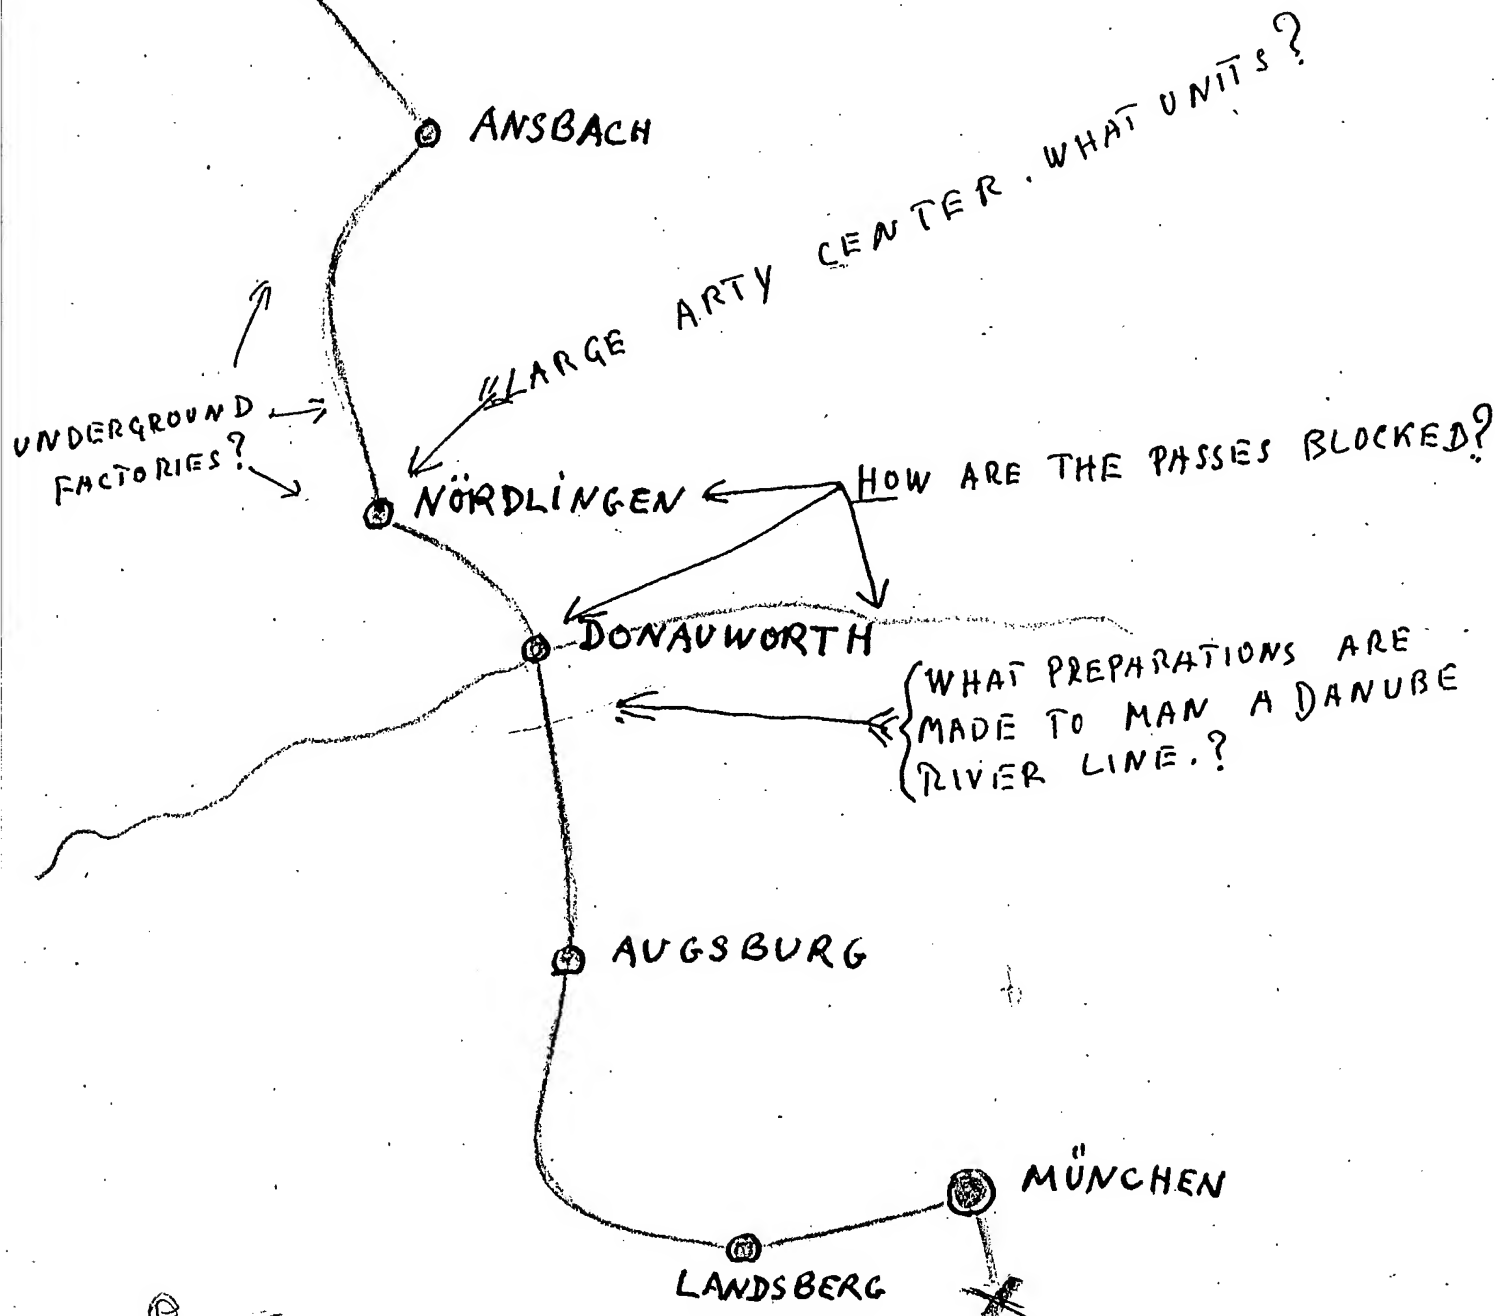 ANSBACH
LARGE ARTY CENTER. WHAT UNITS?
UNDERGROUND
FACTORIES?
NÖRDLINGEN
HOW ARE THE PASSES BLOCKED?
DONAUWORTH
WHAT PREPARATIONS ARE
MADE TO MAN A DANUBE
RIVER LINE.?
AUGSBURG
MÜNCHEN
LANDSBERG